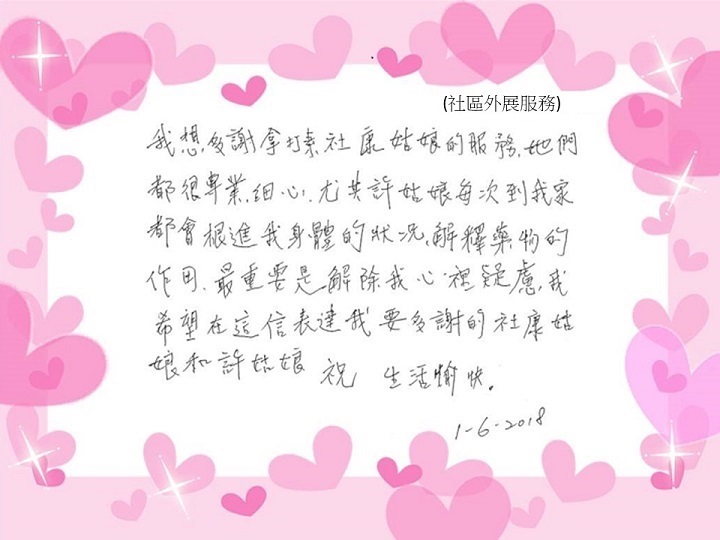 (社區外展服務)
我想多謝拿打素社康姑娘的服務,她們
都很專業,細心,尤其許姑娘每次到我家
都會根進我身體的狀况,解釋藥物的
作用,最重要是解除我心裡疑慮,我
希望在這信表達我要多謝的社康姑
娘和許姑娘 祝 生活愉快。
1-6-2018